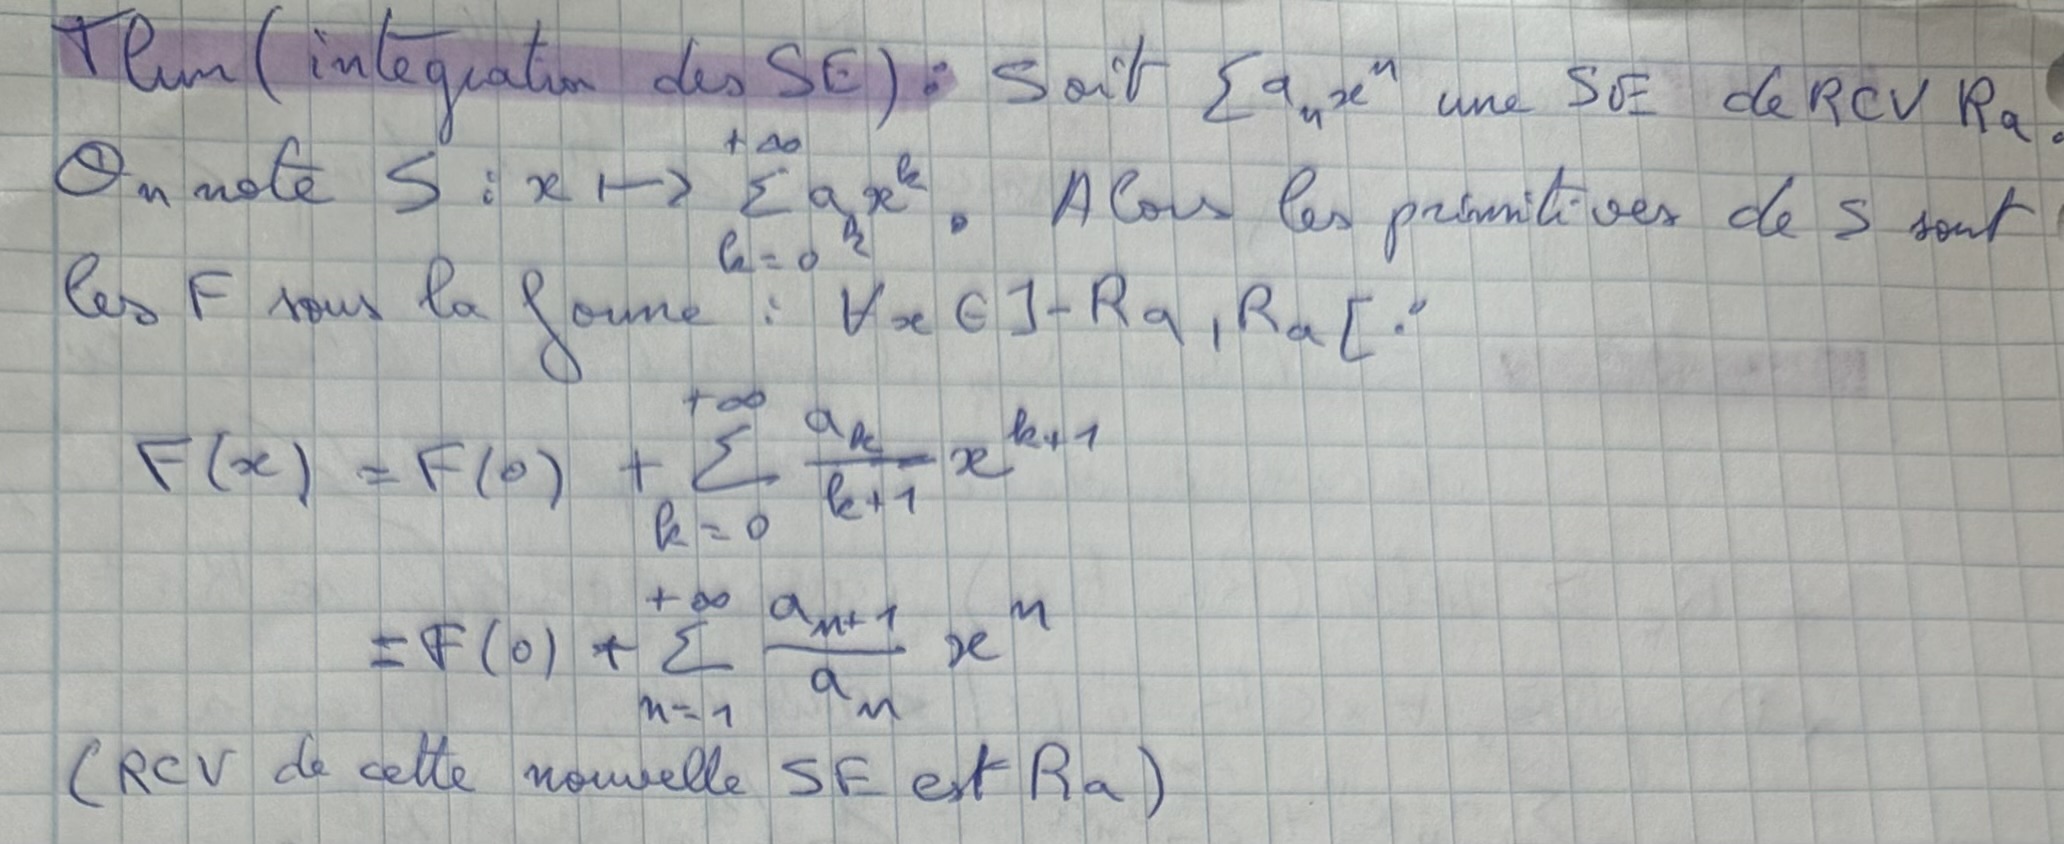 Thm (intégration des SE) : Soit ∑aₙxⁿ une SE de RCV Ra.
On note S : x ↦ ∑_{k=0}^{+∞} aₖxᵏ. Alors les primitives de S sont
les F sous la forme : ∀x ∈ ]-Ra, Ra[ :
F(x) = F(0) + ∑_{k=0}^{+∞} \frac{a_k}{k+1} x^{k+1}
= F(0) + ∑_{n=1}^{+∞} \frac{a_{n+1}}{a_n} xⁿ
(RCV de cette nouvelle SE est Ra)